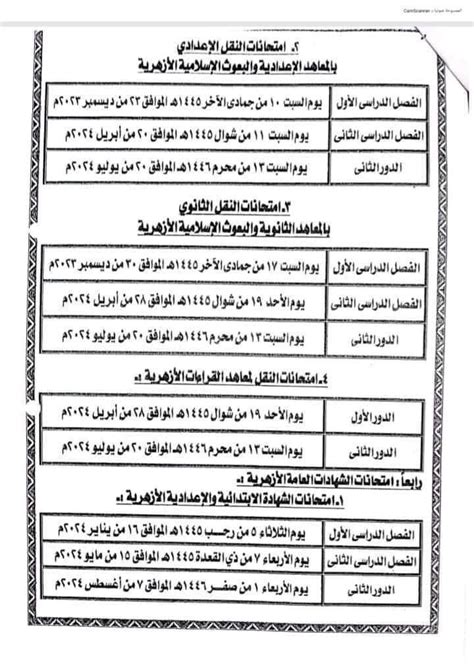 CamScanner
٢ـ امتحانات النقل الإعدادي
بالمعاهد الإعدادية والبعوث الإسلامية الأزهرية
الفصل الدراسى الأول يوم السبت ١٠ من جمادى الآخر ١٤٤٥هـ الموافق ٢٣ من ديسمبر ٢٠٢٣م
الفصل الدراسى الثانى يوم السبت ١١ من شوال ١٤٤٥هـ الموافق ٢٠ من أبريل ٢٠٢٤م
الدور الثانى يوم السبت ١٣ من محرم ١٤٤٦هـ الموافق ٢٠ من يوليو ٢٠٢٤م
٣ـ امتحانات النقل الثانوي
بالمعاهد الثانوية والبعوث الإسلامية الأزهرية
الفصل الدراسى الأول يوم السبت ١٧ من جمادى الآخر ١٤٤٥هـ الموافق ٣٠ من ديسمبر ٢٠٢٣م
الفصل الدراسى الثانى يوم الأحد ١٩ من شوال ١٤٤٥هـ الموافق ٢٨ من أبريل ٢٠٢٤م
الدور الثانى يوم السبت ١٣ من محرم ١٤٤٦هـ الموافق ٢٠ من يوليو ٢٠٢٤م
٤ـ امتحانات النقل لمعاهد القراءات الأزهرية :ـ
الدور الأول يوم الأحد ١٩ من شوال ١٤٤٥هـ الموافق ٢٨ من أبريل ٢٠٢٤م
الدور الثانى يوم السبت ١٣ من محرم ١٤٤٦هـ الموافق ٢٠ من يوليو ٢٠٢٤م
رابعاً: امتحانات الشهادات العامة الأزهرية :ـ
١ـ امتحانات الشهادة الابتدائية والإعدادية الأزهرية :ـ
الفصل الدراسى الأول يوم الثلاثاء ٥ من رجـب ١٤٤٥هـ الموافق ١٦ من يناير ٢٠٢٤م
الفصل الدراسى الثانى يوم الأربعاء ٧ من ذي القعدة ١٤٤٥هـ الموافق ١٥ من مايو ٢٠٢٤م
الدور الثانى يوم الأربعاء ١ من صفـر ١٤٤٦هـ الموافق ٧ من أغسطس ٢٠٢٤م